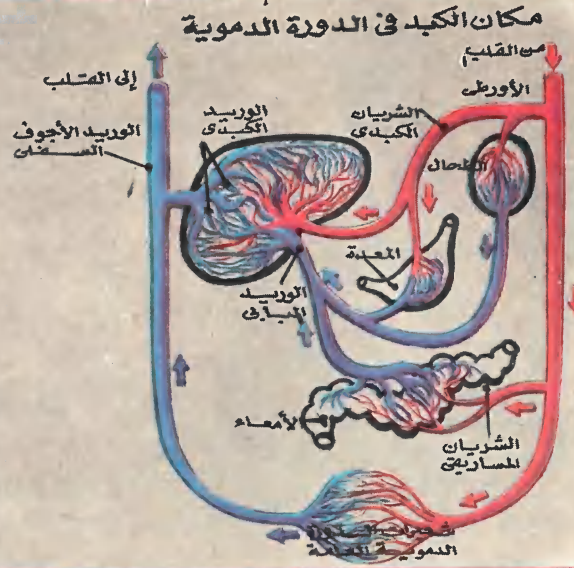 مكان الكبد فى الدورة الدموية
من القلب
إلى القلب
الأورطى
الوريد
الكبدى
الشريان
الكبدى
الوريد الأجوف
السفلى
الطحال
المعدة
الوريد
البابى
الأمعاء
الشريان
المساريقى
شعيرات الدورة
الدموية العامة